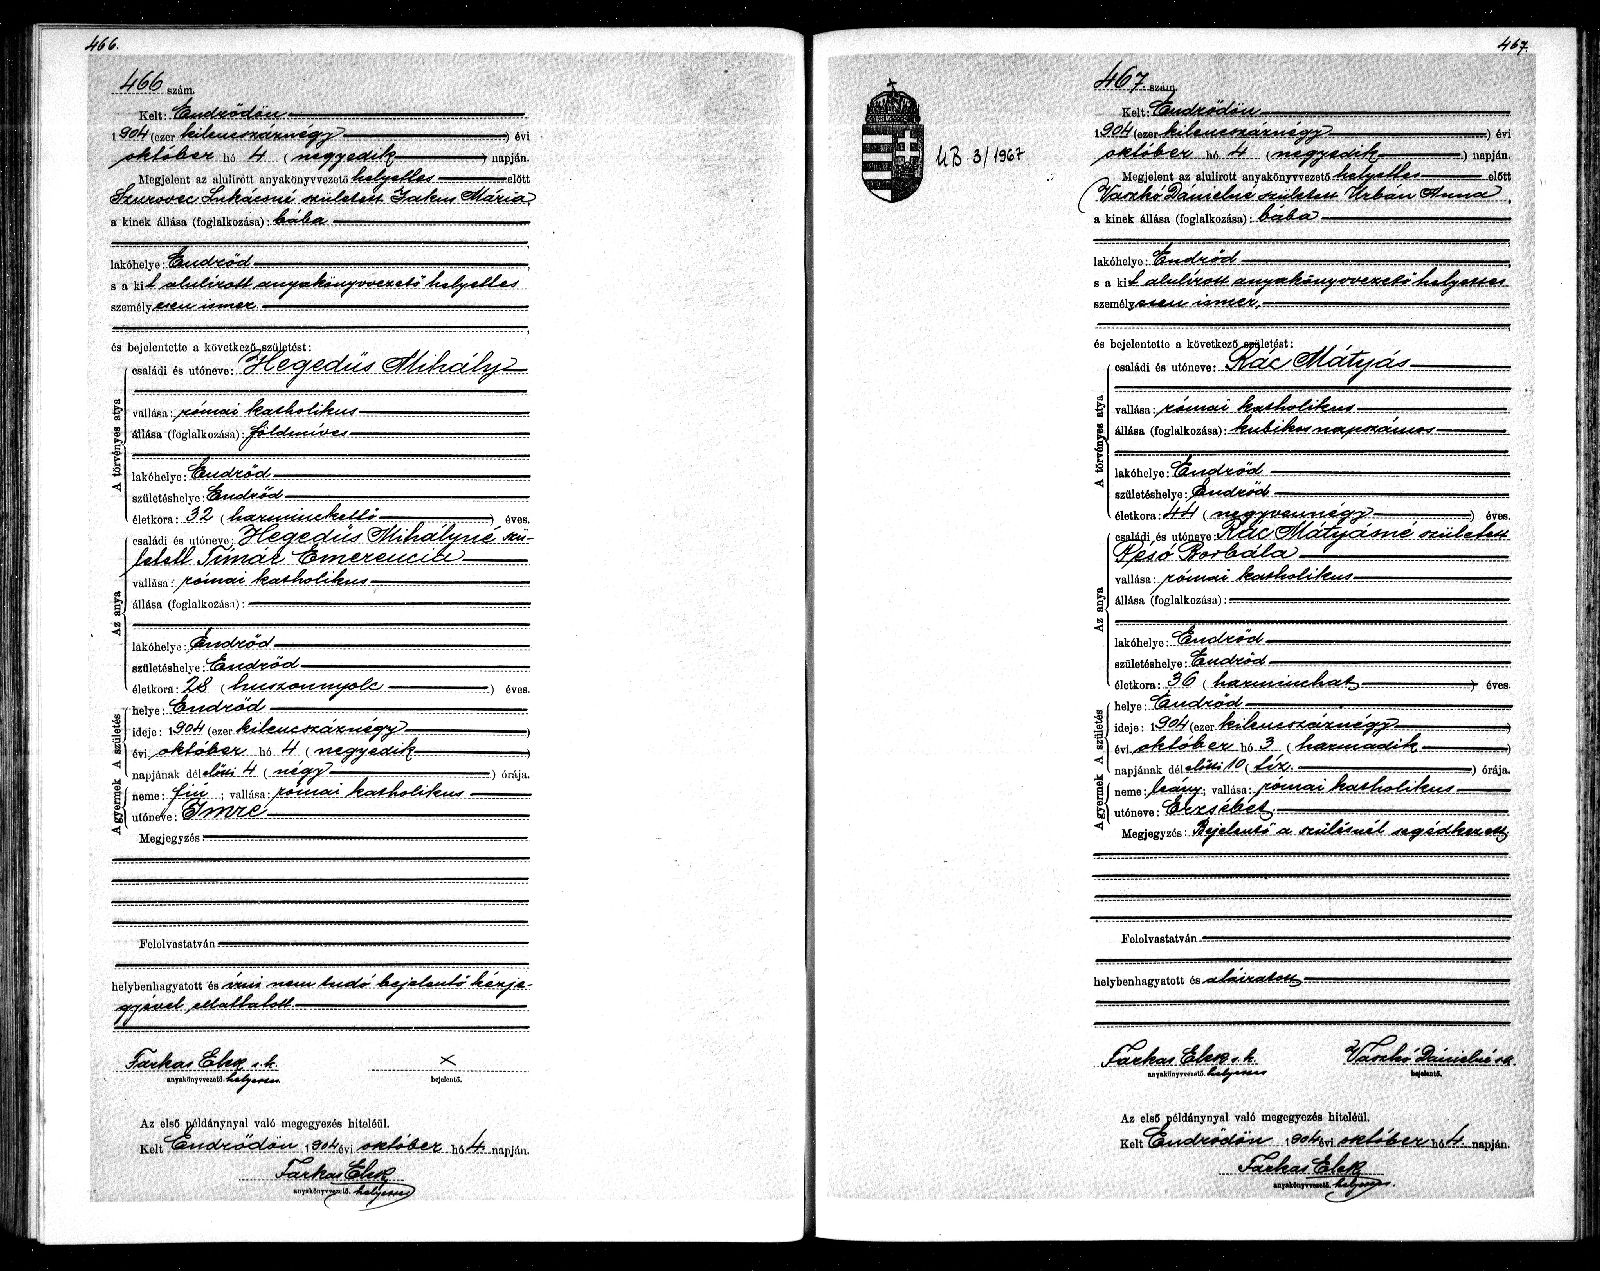 466.
466 szám.
Kelt: Endrődön
1904 (ezer kilencszáznégy) évi
október hó 4 (negyedik) napján.
Megjelent az alulirott anyakönyvvezető helyettes előtt
Szurovec Lukácsné született Jakus Mária,
a kinek állása (foglalkozása): bába
lakóhelye: Endrőd
s a kit alulírott anyakönyvvezető helyettes
személyesen ismer
és bejelentette a következő születést:
A törvényes atya
családi és utóneve: Hegedűs Mihály
vallása: római katholikus
állása (foglalkozása): földmíves
lakóhelye: Endrőd
születéshelye: Endrőd
életkora: 32 (harminckettő) éves.
Az anya
családi és utóneve: Hegedűs Mihályné szü-
letett Tímár Emerencia
vallása: római katholikus
állása (foglalkozása):
lakóhelye: Endrőd
születéshelye: Endrőd
életkora: 28 (huszonnyolc) éves.
A születés
helye: Endrőd
ideje: 1904 (ezer kilencszáznégy)
évi október hó 4 (negyedik)
napjának délelőtti 4 (négy) órája.
A gyermek
neme: fiu; vallása: római katholikus
utóneve: Imre
Megjegyzés
Felolvastatván
helybenhagyatott és írni nem tudó bejelentő kézje-
gyével elláttatott
Farkas Elek s.k. ×
anyakönyvvezető helyettes bejelentő.
Az első példánynyal való megegyezés hiteléül.
Kelt Endrődön 1904 évi október hó 4 napján.
Farkas Elek
anyakönyvvezető. helyettes
467.
467 szám.
3/1967
Kelt: Endrődön
1904 (ezer kilencszáznégy) évi
október hó 4 (negyedik) napján.
Megjelent az alulirott anyakönyvvezető helyettes előtt
Vaszkó Dánielné született Urbán Anna,
a kinek állása (foglalkozása): bába
lakóhelye: Endrőd
s a kit alulírott anyakönyvvezető helyettes
személyesen ismer,
és bejelentette a következő születést:
A törvényes atya
családi és utóneve: Rác Mátyás
vallása: római katholikus
állása (foglalkozása): kubikos napszámos
lakóhelye: Endrőd
születéshelye: Endrőd
életkora: 44 (negyvennégy) éves.
Az anya
családi és utóneve: Rác Mátyásné született
Resó Borbála
vallása: római katholikus
állása (foglalkozása):
lakóhelye: Endrőd
születéshelye: Endrőd
életkora: 36 (harminchat) éves.
A születés
helye: Endrőd
ideje: 1904 (ezer kilencszáznégy)
évi október hó 3 (harmadik)
napjának délelőtti 10 (tíz) órája.
A gyermek
neme: leány; vallása: római katholikus
utóneve: Erzsébet
Megjegyzés: Bejelentő a szülésnél segédkezett
Felolvastatván
helybenhagyatott és aláiratott
Farkas Elek s.k. Vaszkó Dánielné s.k.
anyakönyvvezető. helyettes bejelentő.
Az első példánynyal való megegyezés hiteléül.
Kelt Endrődön 1904 évi október hó 4. napján.
Farkas Elek
anyakönyvvezető. helyettes.